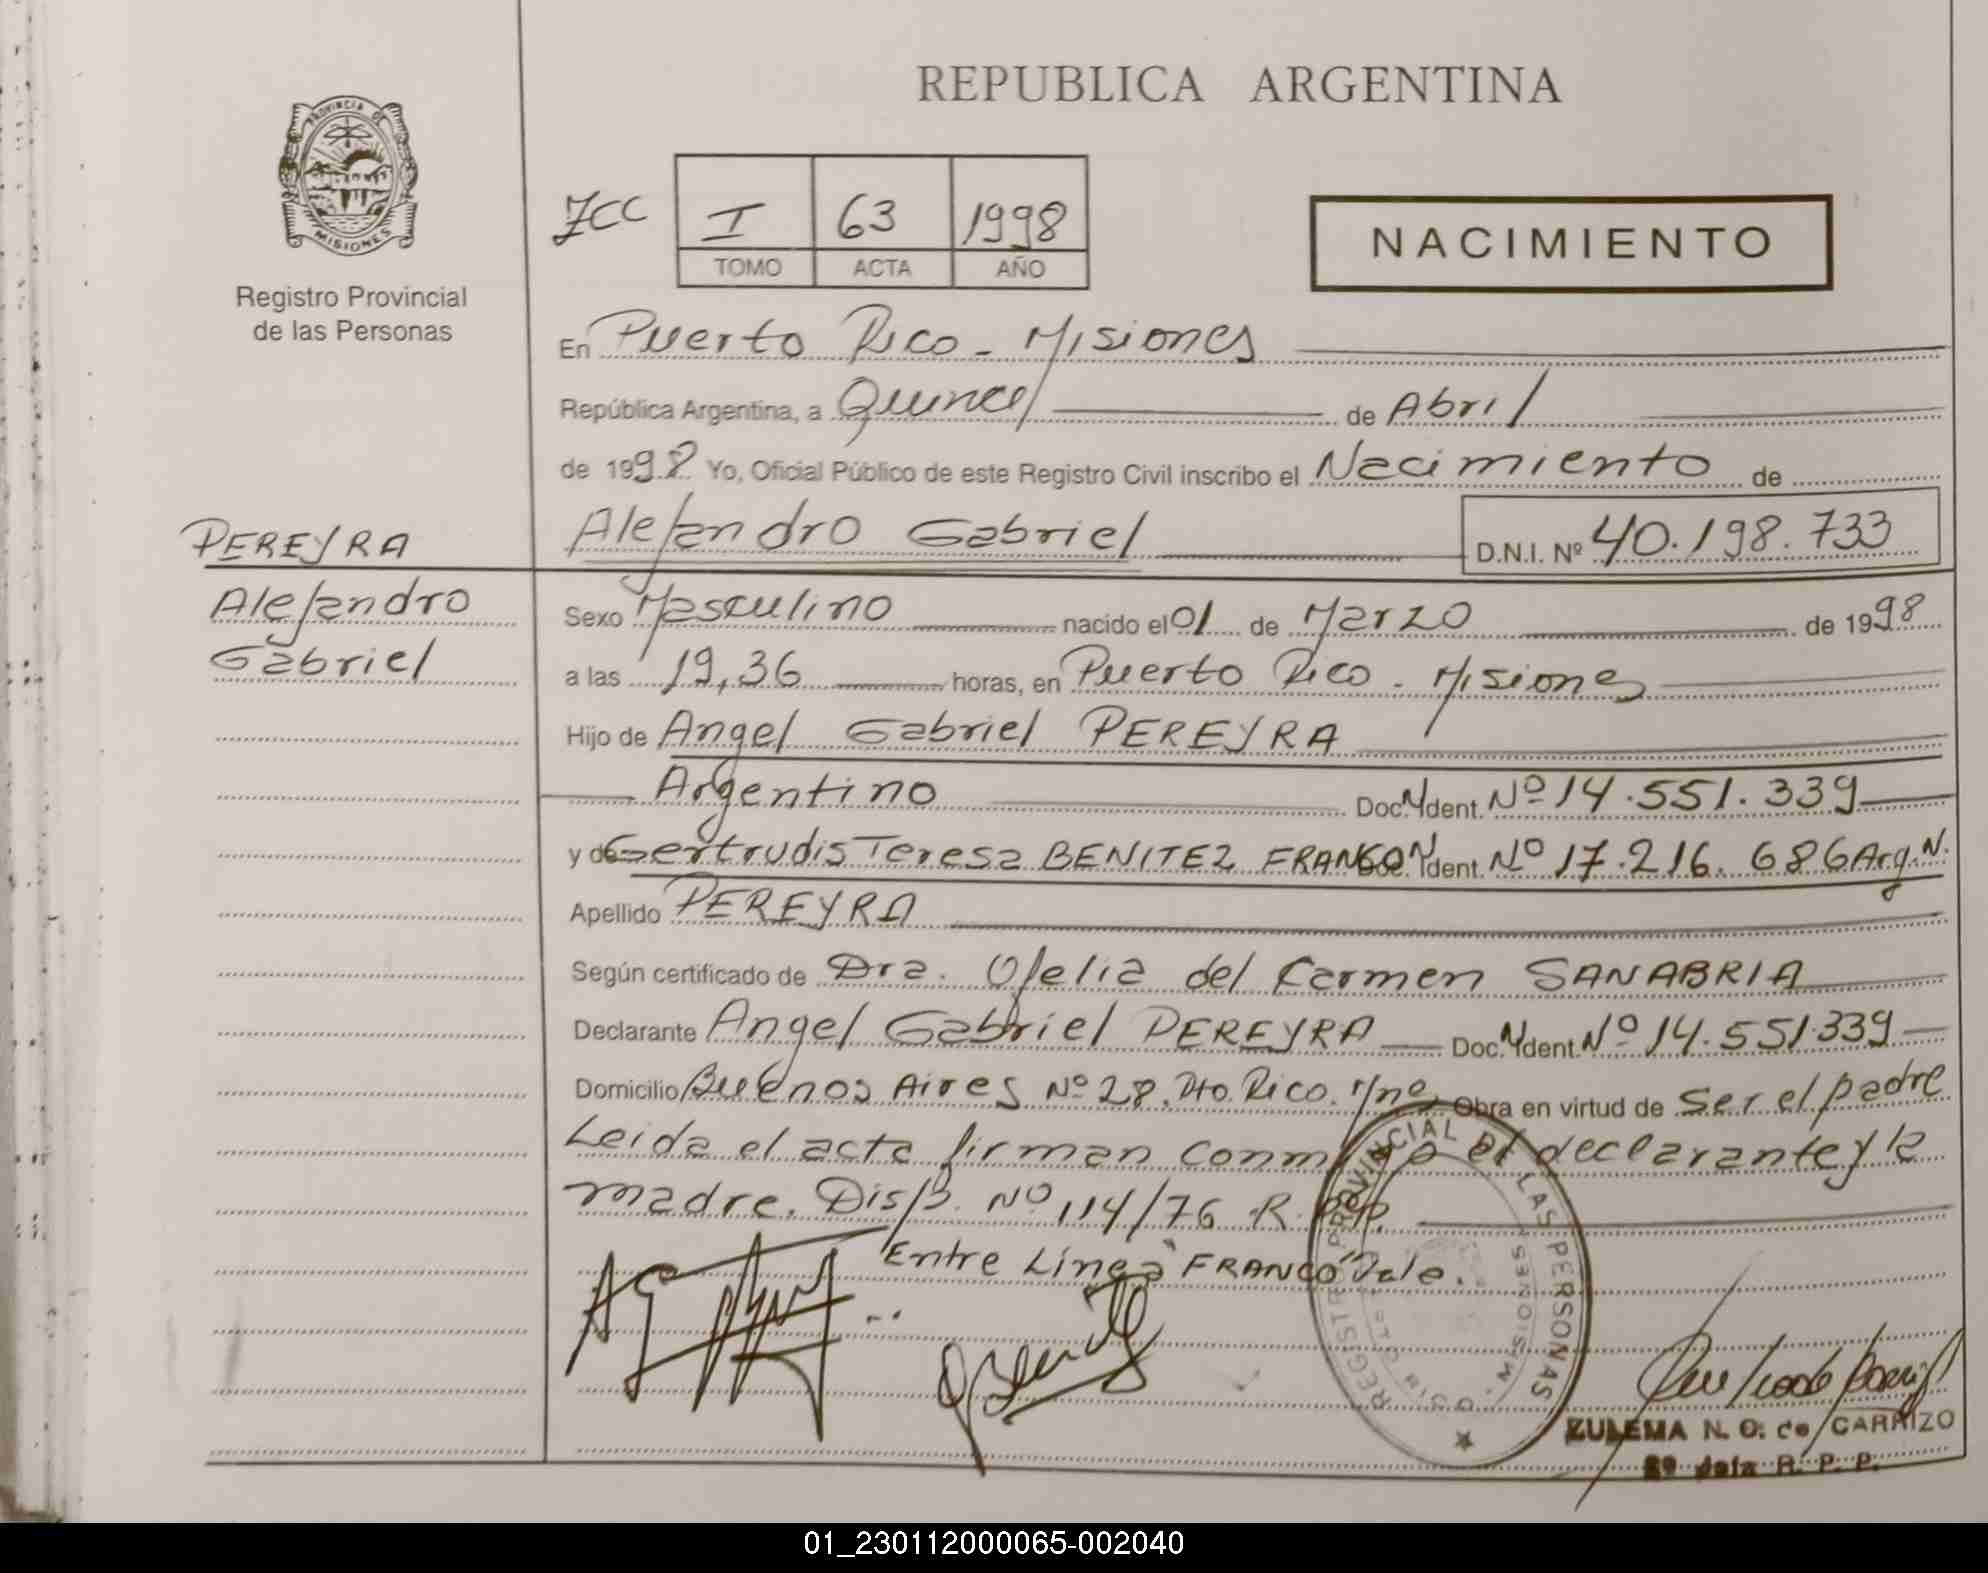 PROVINCIA DE
MISIONES
Registro Provincial
de las Personas
REPUBLICA ARGENTINA
I 63 1998
TOMO ACTA AÑO
NACIMIENTO
En Puerto Rico - Misiones
República Argentina, a Quince de Abril
de 1998 Yo, Oficial Público de este Registro Civil inscribo el Nacimiento de
PEREYRA
Alejandro Gabriel
D.N.I. Nº 40.198.733
Alejandro
Gabriel
Sexo Masculino nacido el 01 de Marzo de 1998
a las 19,36 horas, en Puerto Rico - Misiones
Hijo de Angel Gabriel PEREYRA
Argentino Doc. Ident. Nº 14.551.339
y de Gertrudis Teresa BENITEZ FRANCO Doc. Ident. Nº 17.216.686 Arg. N.
Apellido PEREYRA
Según certificado de Dra. Ofelia del Carmen SANABRIA
Declarante Angel Gabriel PEREYRA Doc. Ident. Nº 14.551.339
Domicilio Buenos Aires Nº 28. Pto Rico. Mnes Obra en virtud de Ser el padre
Leida el acta firman conmigo el declarante y la
madre. Disp. Nº 114/76 R.P.P.
Entre Linea "FRANCO" Vale.
REGISTRO PROVINCIAL DE LAS PERSONAS
MISIONES
ZULEMA N. O. de CARRIZO
2º Jefa R. P. P.
01_230112000065-002040